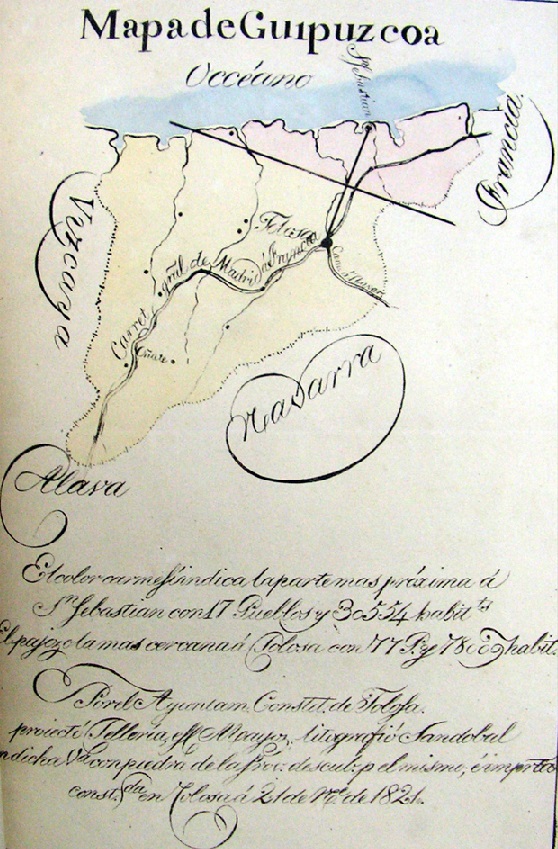 Mapa de Guipuzcoa
Occéano
Sn Sebastian
Francia
Vizcaya
Tolosa
Carret gral de Madrid á Francia
Oñate
Navarra
Alava
El color carmesí indica la parte mas próxima á
Sn Sebastian con 17 Pueblos y 30554 habits
El pajizo la mas cercana á Tolosa con 77 Ps y
habit.
Por el Ayuntam. Constit. de Tolosa.
proiectó Telleria, off Mayor, litografió Sandobal
en dicha Va con piedra de la Prov. descub. p el mismo, é imprenta
const. en Tolosa á 21 de de 1821.